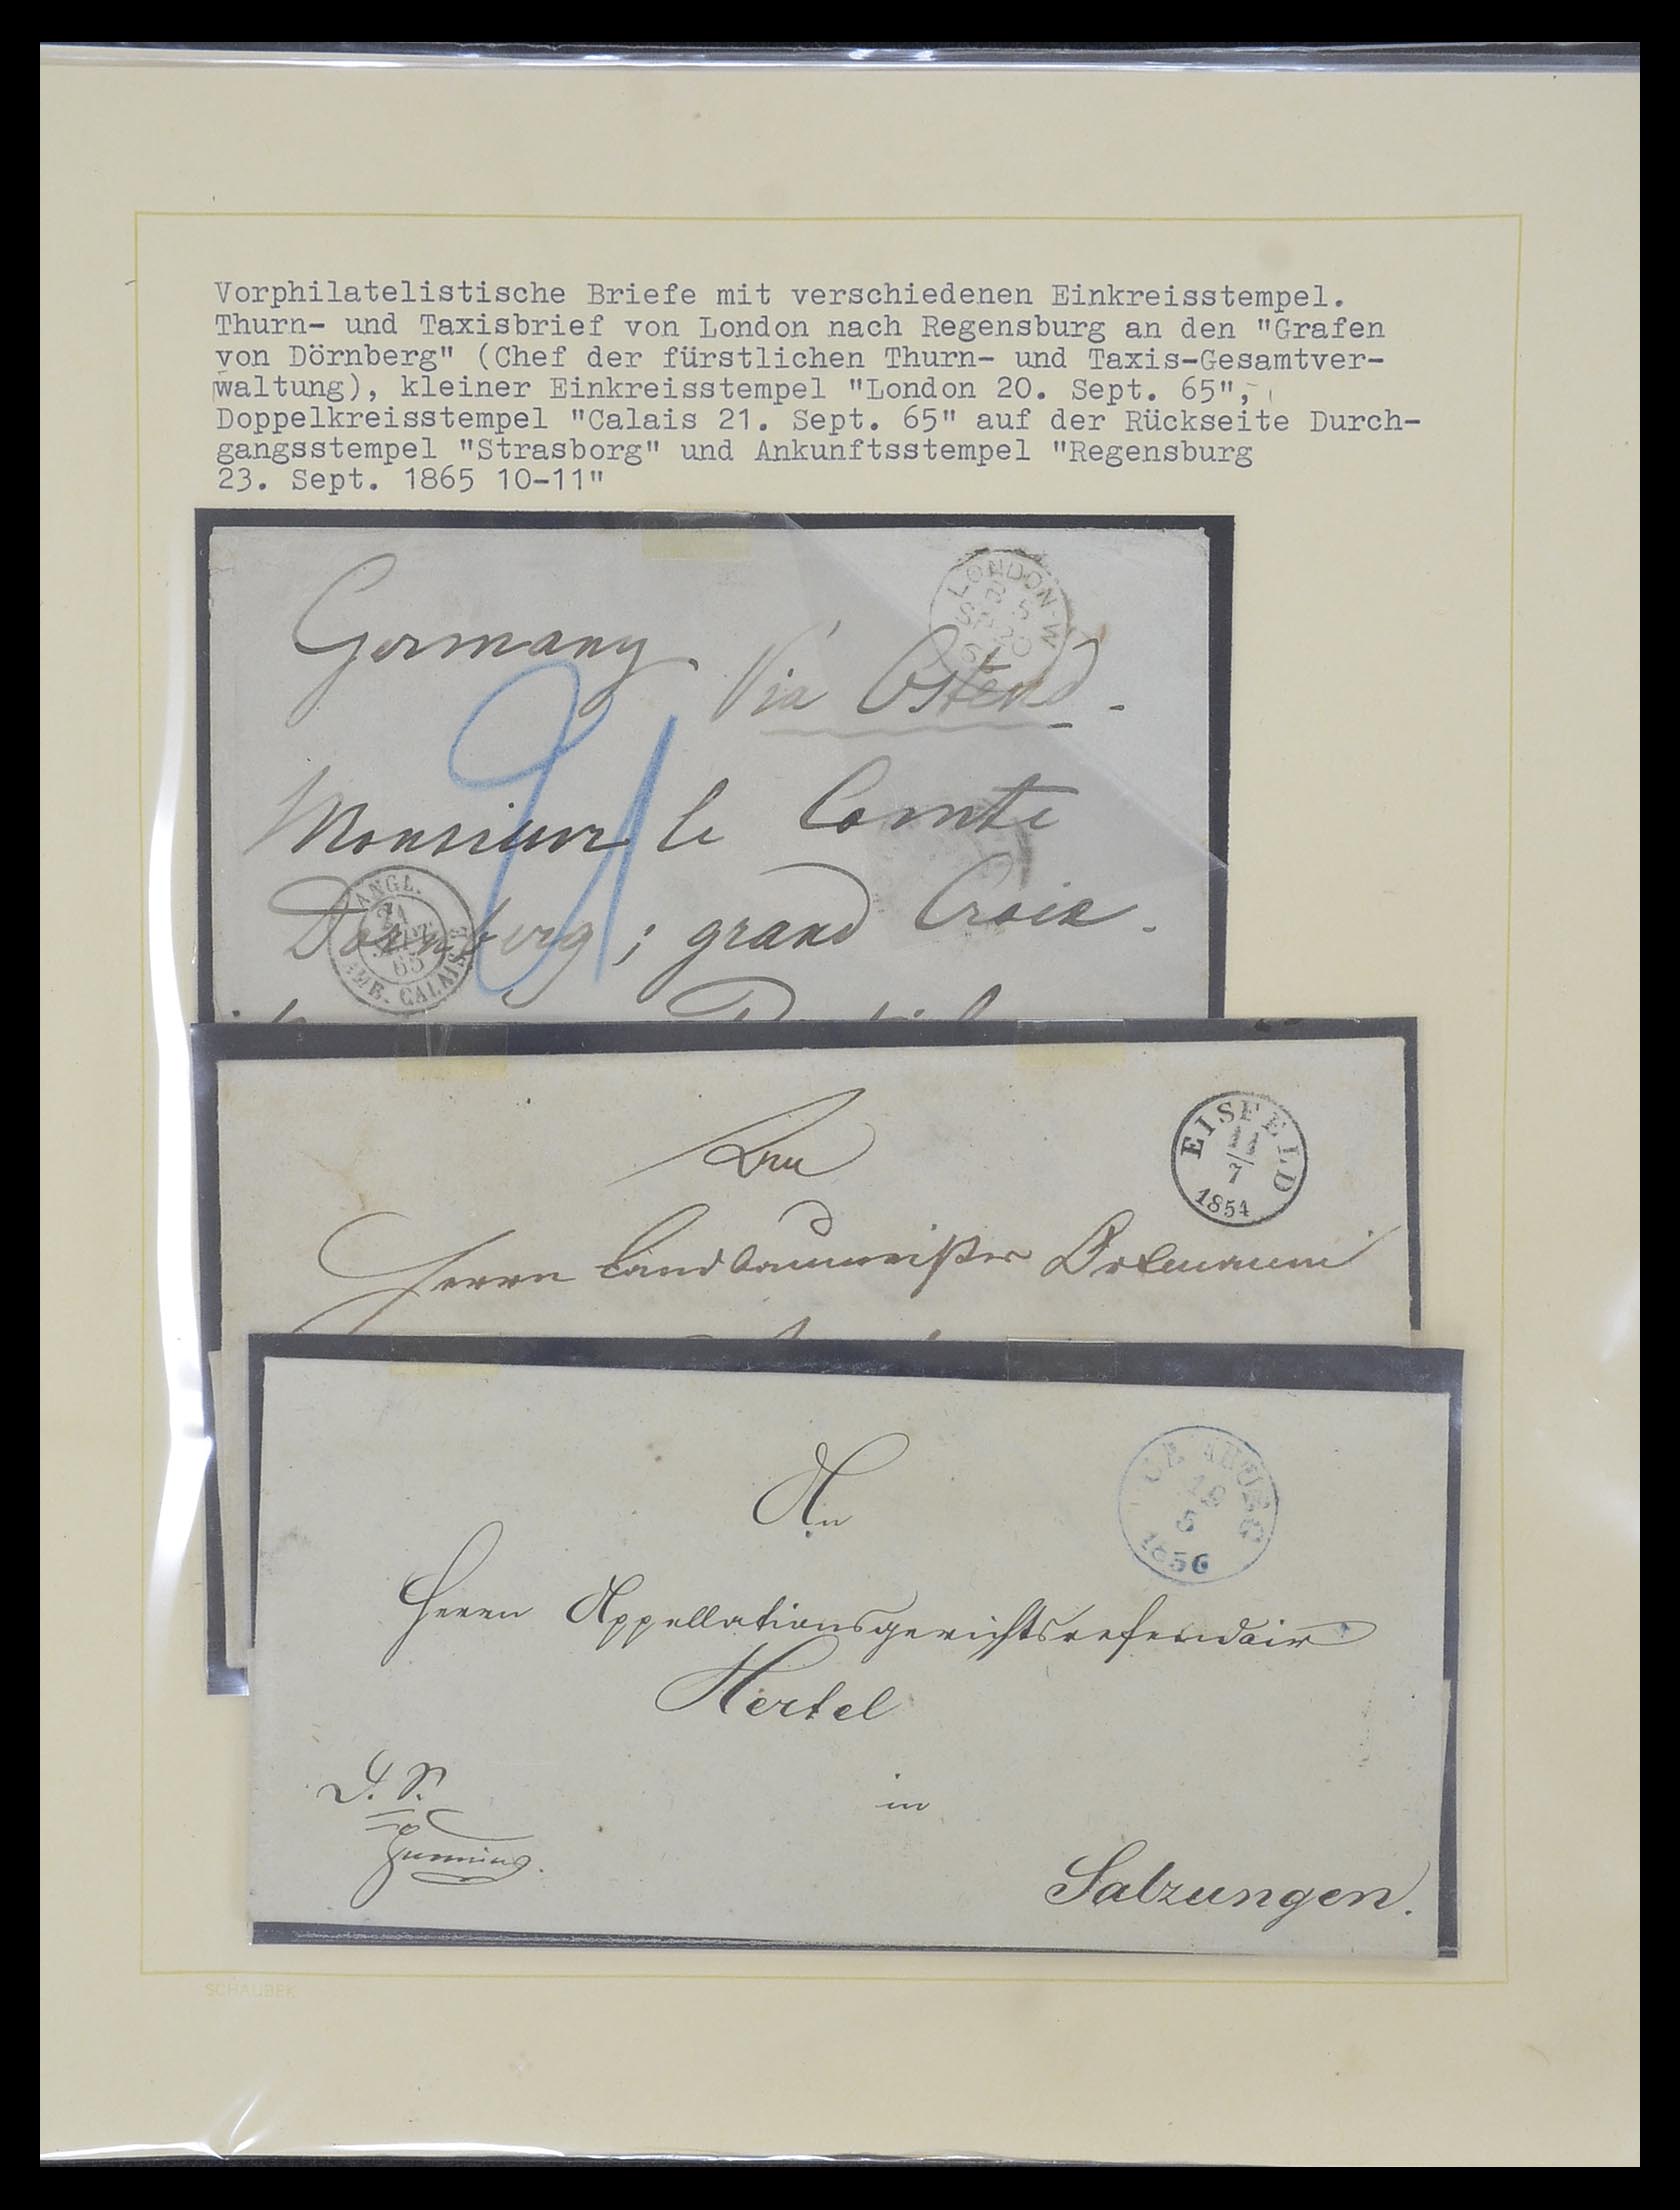 Vorphilatelistische Briefe mit verschiedenen Einkreisstempel.
Thurn- und Taxisbrief von London nach Regensburg an den "Grafen
von Dörnberg" (Chef der fürstlichen Thurn- und Taxis-Gesamtver-
waltung), kleiner Einkreisstempel "London 20. Sept. 65",
Doppelkreisstempel "Calais 21. Sept. 65" auf der Rückseite Durch-
gangsstempel "Strasborg" und Ankunftsstempel "Regensburg
23. Sept. 1865 10-11"
LONDON-W
Germany
Via Ostend.
Monsieur le Comte
Dörnberg; grand Croix.
ANGL.
21
65
AMB. CALAIS
EISFELD
11
7
1854
Herrn Landbaumeister
19
5
1856
An
Herrn Appellationsgerichtsreferendair
Hertel
D. S.
in
Salzungen.
SCHAUBEK